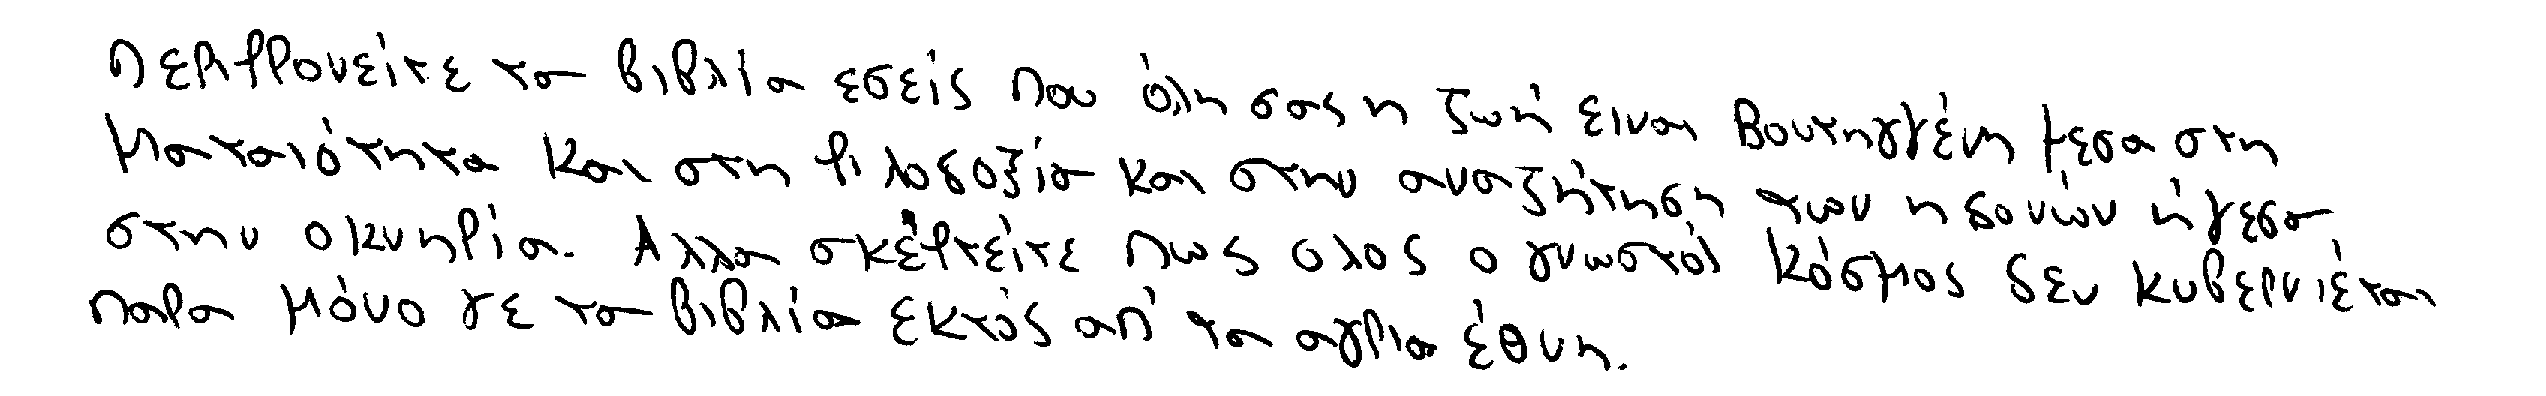 Περιφρονείτε τα βιβλία εσείς που όλη σας η ζωή ειναι βουτηγμένη μεσα στη
ματαιότητα και στη φιλοδοξία και στην αναζήτηση των ηδονών ή μεσα
στην οκνηρία. Αλλα σκέφτείτε πως ολος ο γνωστός κόσμος δεν κυβερνιέται
παρα μόνο με τα βιβλία εκτός απ' τα αγρια έθνη.